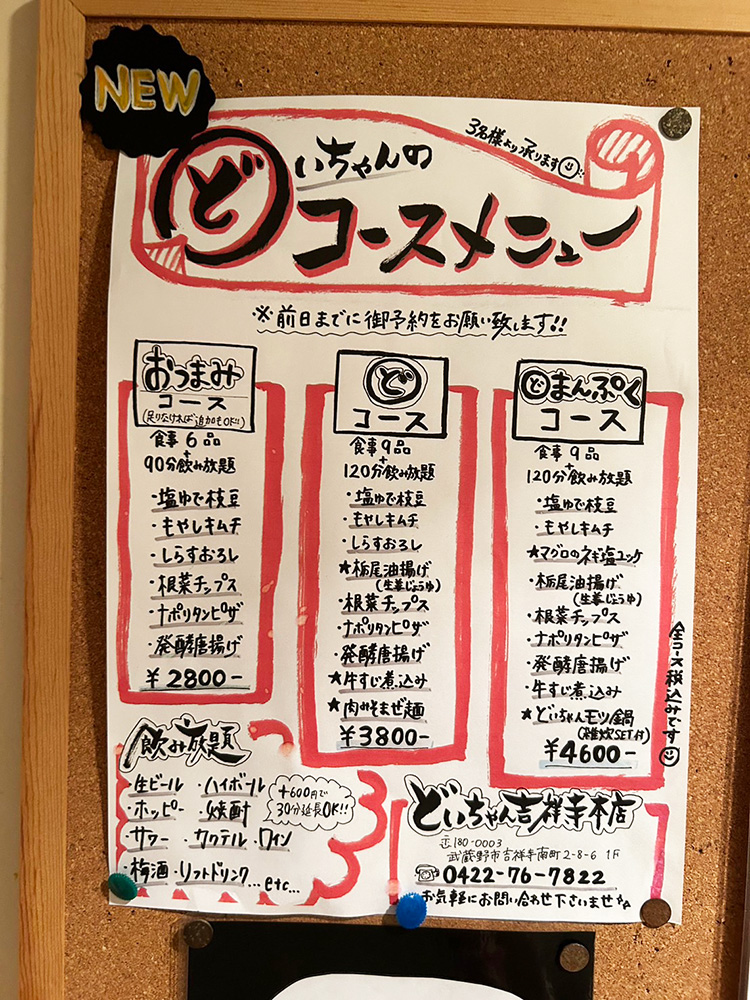 NEW
3名様より承ります
どいちゃんの
コースメニュー
※前日までに御予約をお願い致します!!
おつまみ
コース
(足りなければ追加もOK!!)
食事6品
+
90分飲み放題
・塩ゆで枝豆
・もやしキムチ
・しらすおろし
・根菜チップス
・ナポリタンピザ
・発酵唐揚げ
¥2800-
ど
コース
食事9品
+
120分飲み放題
・塩ゆで枝豆
・もやしキムチ
・しらすおろし
★栃尾油揚げ
(生姜じょうゆ)
・根菜チップス
・ナポリタンピザ
・発酵唐揚げ
★牛すじ煮込み
★肉みそまぜ麺
¥3800-
どまんぷく
コース
食事9品
+
120分飲み放題
・塩ゆで枝豆
・もやしキムチ
★マグロのネギ塩ユッケ
・栃尾油揚げ
(生姜じょうゆ)
・根菜チップス
・ナポリタンピザ
・発酵唐揚げ
・牛すじ煮込み
★どいちゃんモツ鍋
(雑炊SET付)
¥4600-
全コース税込みです
飲み放題
・生ビール ・ハイボール
・ホッピー ・焼酎
・サワー ・カクテル ・ワイン
・梅酒 ・ソフトドリンク...etc...
+600円で
30分延長OK!!
どいちゃん吉祥寺本店
〒180-0003
武蔵野市吉祥寺南町2-8-6 1F
☎0422-76-7822
お気軽にお問い合わせ下さいませ